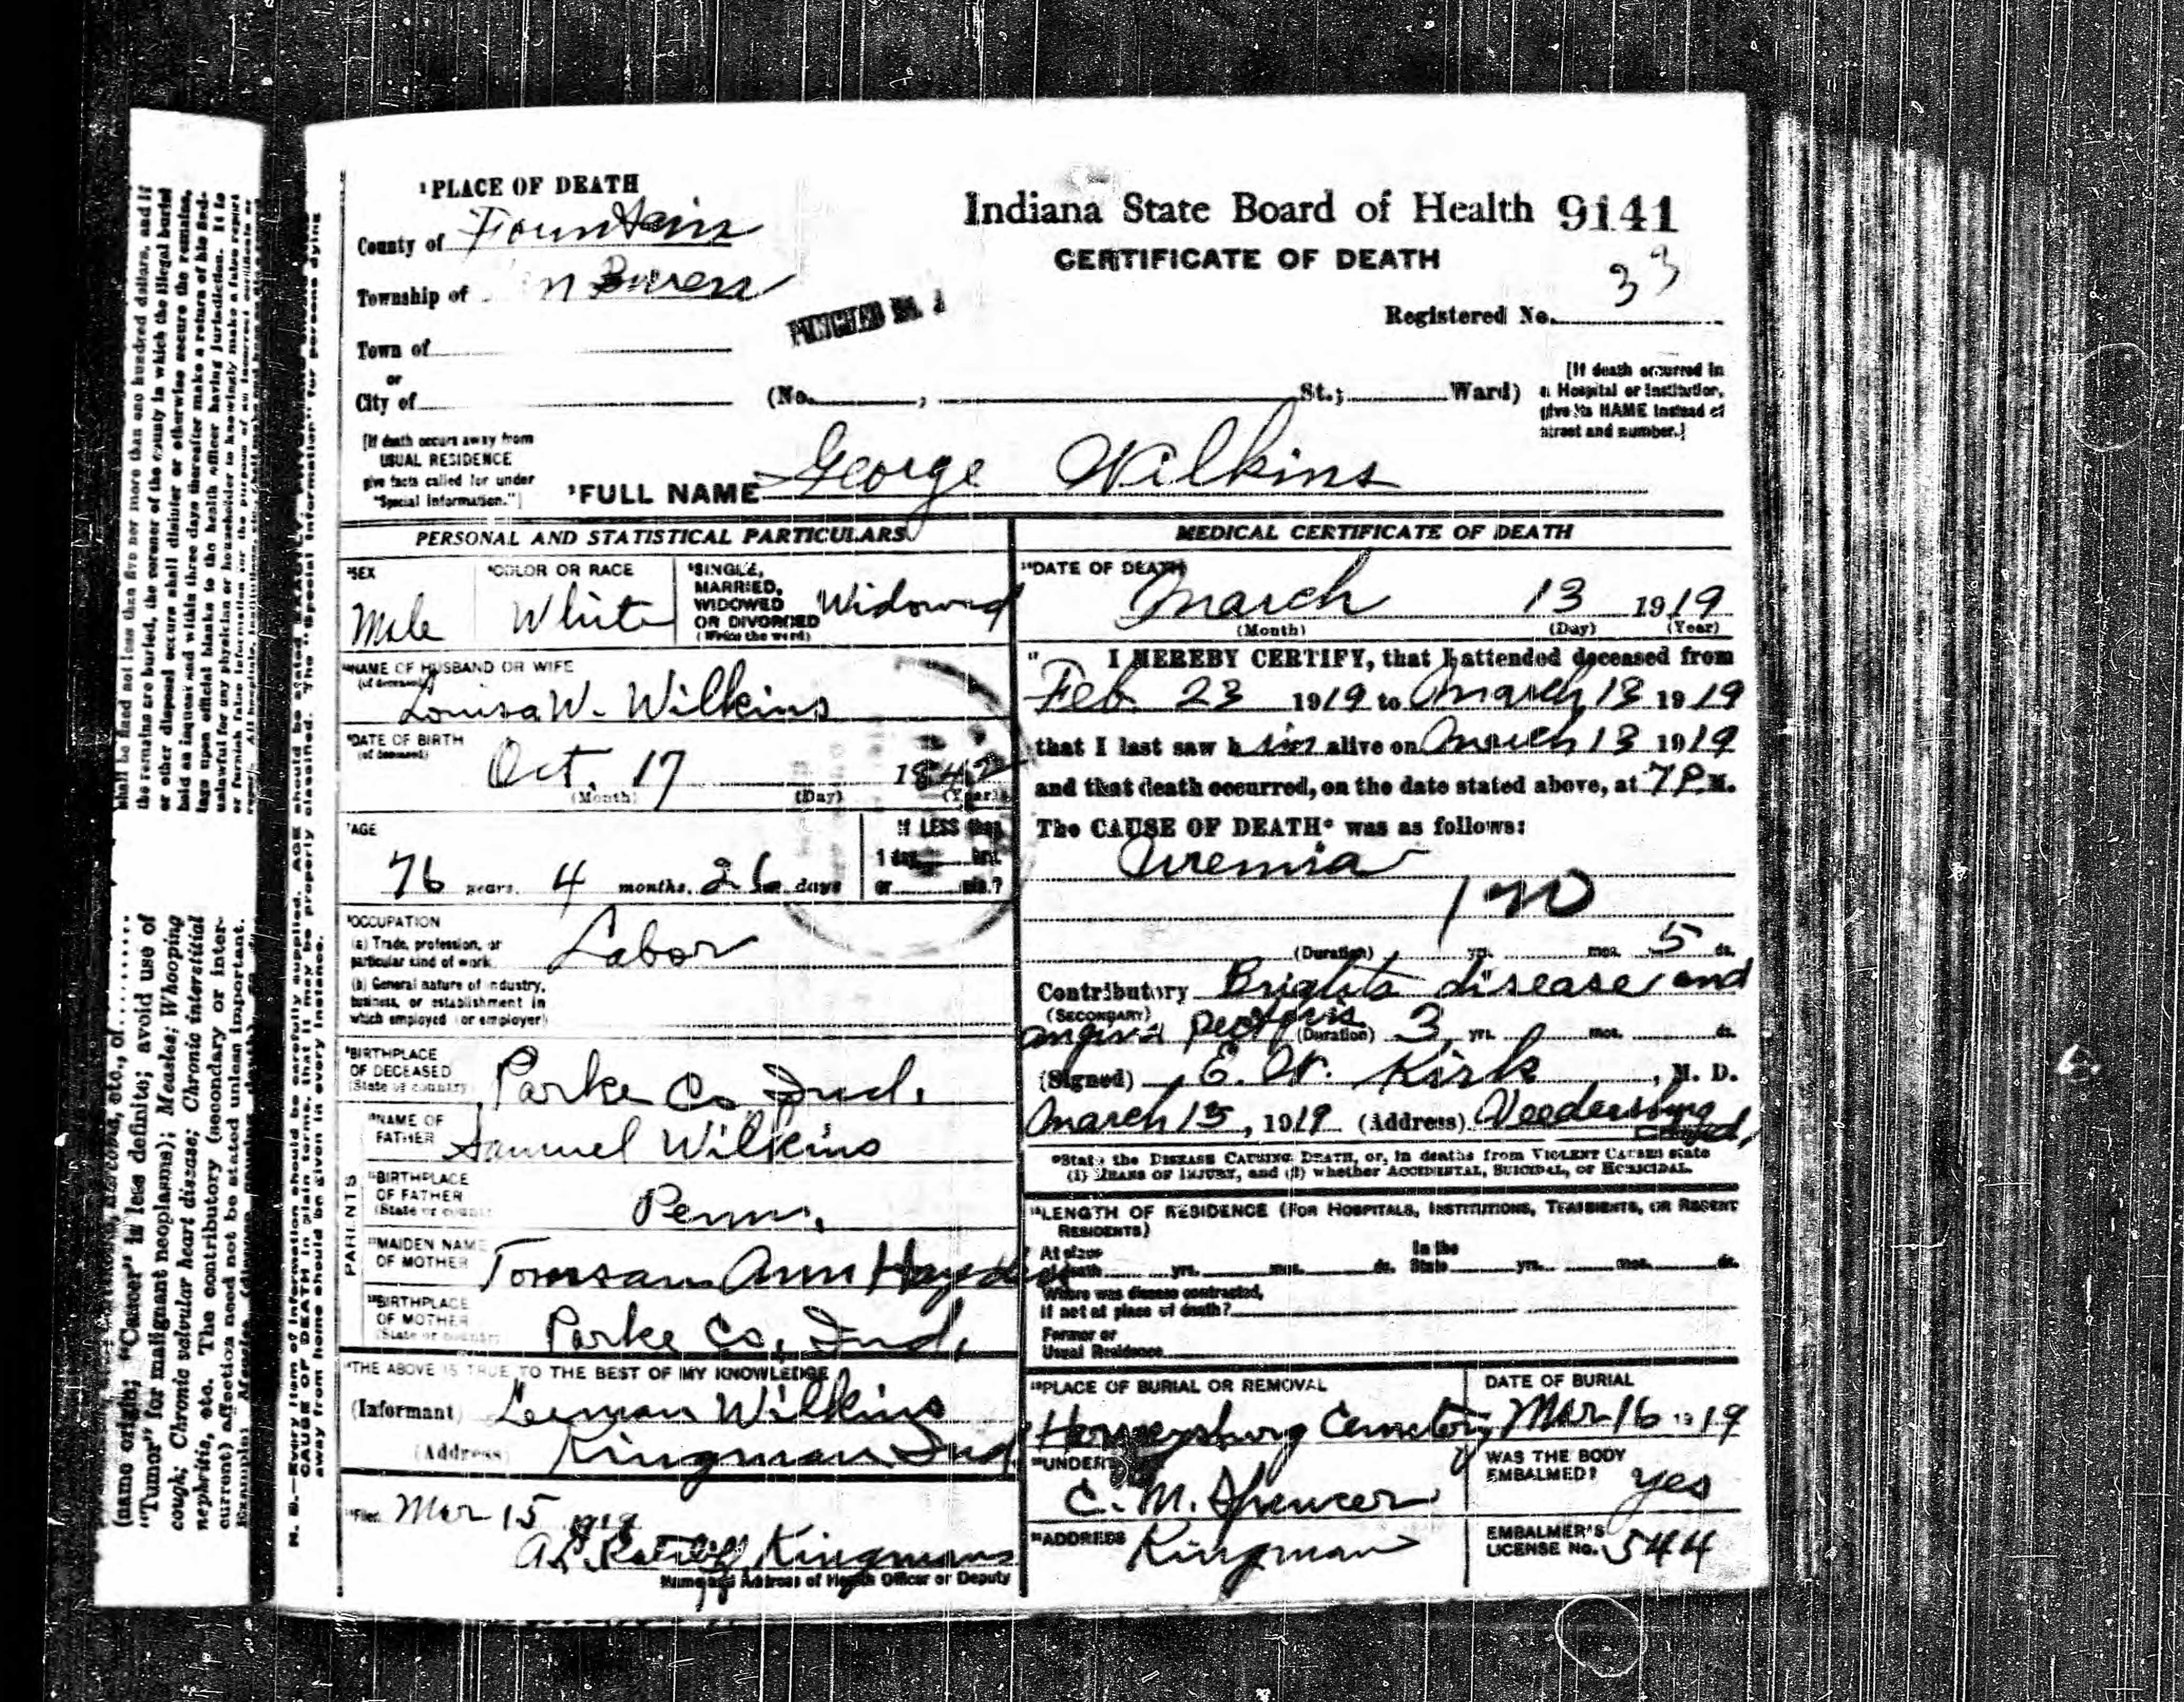 ¹PLACE OF DEATH
County of Fountain
Township of n Buren
Town of
or
City of
Indiana State Board of Health 9141
CERTIFICATE OF DEATH
PUNCHED
Registered No. 33
(No. , St.; Ward)
[If death occurred in
a Hospital or Institution,
give its NAME instead of
street and number.]
[If death occurs away from
USUAL RESIDENCE
give facts called for under
"Special Information."]
²FULL NAME George Wilkins
PERSONAL AND STATISTICAL PARTICULARS
SEX
Male
COLOR OR RACE
White
SINGLE,
MARRIED,
WIDOWED
OR DIVORCED
(Write the word)
Widowed
NAME OF HUSBAND OR WIFE
(of deceased)
Louisa W. Wilkins
DATE OF BIRTH
(of deceased)
Oct. 17 1842
(Month) (Day) (Year)
AGE
76 years. 4 months. 26 days
If LESS than
1 day hrs.
or min.?
OCCUPATION
(a) Trade, profession, or
particular kind of work
Labor
(b) General nature of industry,
business, or establishment in
which employed (or employer)
BIRTHPLACE
OF DECEASED
(State or country)
Parke Co Ind.
PARENTS
NAME OF
FATHER
Samuel Wilkins
BIRTHPLACE
OF FATHER
Penn.
MAIDEN NAME
OF MOTHER
Ann
BIRTHPLACE
OF MOTHER
(State or country)
Parke Co, Ind.
THE ABOVE IS TRUE TO THE BEST OF MY KNOWLEDGE
(Informant) Leeman Wilkins
(Address) Kingman Ind
Filed Mar 15 1919
Kingman
Name and Address of Health Officer or Deputy
MEDICAL CERTIFICATE OF DEATH
DATE OF DEATH
March 13 1919
(Month) (Day) (Year)
I HEREBY CERTIFY, that I attended deceased from
Feb. 23 1919 to March 13 1919
that I last saw h im alive on March 13 1919
and that death occurred, on the date stated above, at 7 P.M.
The CAUSE OF DEATH* was as follows:
Uremia
120
(Duration) yrs. mos. 5 ds.
Contributory Brights disease and
(SECONDARY)
angina pectoris (Duration) 3 yrs. mos. ds.
(Signed) E. W. Kirk, M. D.
March 15, 1919 (Address) Veedersburg
Ind.
*State the DISEASE CAUSING DEATH, or, in deaths from VIOLENT CAUSES state
(1) MEANS OF INJURY, and (2) whether ACCIDENTAL, SUICIDAL, or HOMICIDAL.
LENGTH OF RESIDENCE (FOR HOSPITALS, INSTITUTIONS, TRANSIENTS, OR RECENT
RESIDENTS)
At place
of death yrs. mos. ds.
In the
State yrs. mos. ds.
Where was disease contracted,
if not at place of death?
Former or
Usual Residence
PLACE OF BURIAL OR REMOVAL
Cemetery
DATE OF BURIAL
Mar 16 1919
UNDER
C. M. Spencer
WAS THE BODY
EMBALMED? yes
ADDRESS Kingman
EMBALMER'S
LICENSE No. 544
shall be fined not less than five nor more than one hundred dollars, and if
the remains are buried, the coroner of the county in which the illegal burial
or other disposal occurs shall disinter or otherwise secure the remains,
hold an inquest and within three days thereafter make a return of his find-
ings upon official blanks to the health officer having jurisdiction. It is
unlawful for any physician or householder to knowingly make a false report
or furnish false information for the purpose of an incorrect certificate or
(name origin; "Cancer" is less definite; avoid use of
"Tumor" for malignant neoplasms); Measles; Whooping
cough; Chronic valvular heart disease; Chronic interstitial
nephritis, etc. The contributory (secondary or inter-
current) affection need not be stated unless important.
N. B.—Every item of information should be carefully supplied. AGE should be stated EXACTLY.
CAUSE OF DEATH in plain terms, that it may be properly classified. The "Special Information" for persons dying
away from home should be given in every instance.